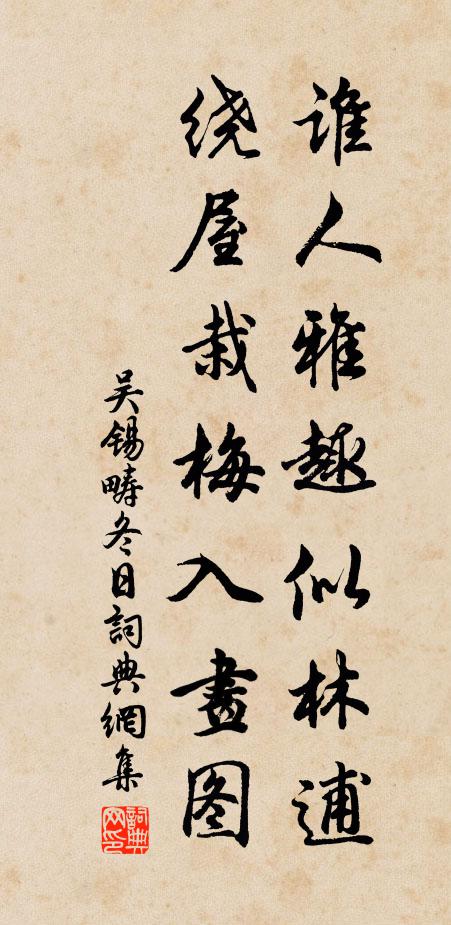 谁人雅趣似林逋
绕屋栽梅入畫图
吴锡畴冬日詞典網集
詞典网印